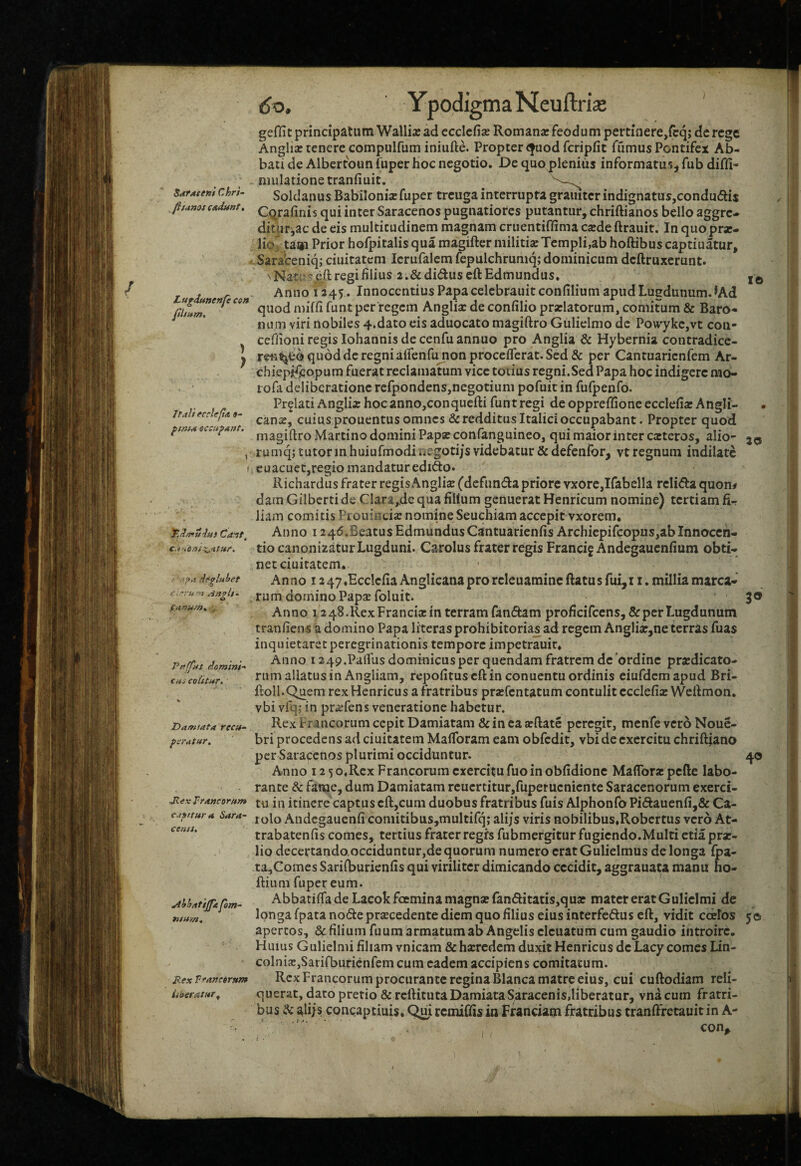 60. Ypodigma Neuſtriæ
geſſit principatum Walliæ ad eccleſiæ Romanæ feodum pertinere,ſcq; de rege
Angliæ tenere compulſum iniuſtè. Propter quod ſcripſit ſummus Pontifex Ab-
bati de Albertoun ſuper hoc negotio. De quo pleniùs informatus, ſub diſſi-
mulatione tranſiuit.
Saraceni Chri-
ſtianos cædunt.
Soldanus Babiloniæ ſuper treuga interrupta grauiter indignatus,conductis
Coraſinis qui inter Saracenos pugnatiores putantur, chriſtianos bello aggre-
ditur,ac de eis multitudinem magnam cruentiſſima cæde ſtrauit. In quo præ-
lio tam Prior hoſpitalis quã magiſter militiæ Templi,ab hoſtibus captiuãtur,
Saraceniq; ciuitatem Ieruſalem ſepulchrumq; dominicum deſtruxerunt.
Natus eſt regi filius 2.& dictus eſt Edmundus.
10
Lugdunenſe con
ſilium.
Anno 1245. Innocentius Papa celebrauit conſilium apud Lugdunum. Ad
quod miſſi ſunt per regem Angliæ de conſilio prælatorum, comitum & Baro-
num viri nobiles 4.dato eis aduocato magiſtro Gulielmo de Powyke,vt con-
ceſſioni regis Iohannis de cenſu annuo pro Anglia & Hybernia contradice-
rent,eò quòd de regni aſſenſu non proceſſerat. Sed & per Cantuarienſem Ar-
chiepiſcopum fuerat reclamatum vice totius regni.Sed Papa hoc indigere mo-
roſa deliberatione reſpondens,negotium poſuit in ſuſpenſo.
Itali eccleſia o-
pima occupant.
Prelati Angliæ hoc anno,conqueſti ſunt regi de oppreſſione eccleſiæ Angli-
canæ, cuius prouentus omnes & redditus Italici occupabant. Propter quod
magiſtro Martino domini Papæ conſanguineo, qui maior inter cæteros, alio-
20
rumq; tutor in huiuſmodi negotijs videbatur & defenſor, vt regnum indilatè
euacuet,regio mandatur edicto.
Richardus frater regis Angliæ (defuncta priore vxore,Iſabella relicta quon-
dam Gilberti de Clara,de qua filium genuerat Henricum nomine) tertiam fi-
liam comitis Prouinciæ nomine Seuchiam accepit vxorem.
Edmũdus Cant.
canonizatur.
Anno 1246.Beatus Edmundus Cantuarienſis Archiepiſcopus,ab Innocen-
tio canonizatur Lugduni. Carolus frater regis Franciç Andegauenſium obti-
net ciuitatem.
Papa deglubet
clerum Angli-
canum.
Anno 1247.Eccleſia Anglicana pro releuamine ſtatus ſui,11. millia marca-
rum domino Papæ ſoluit.
30
Anno 1248.Rex Franciæ in terram ſanctam proficiſcens, & per Lugdunum
tranſiens a domino Papa literas prohibitorias ad regem Angliæ,ne terras ſuas
inquietaret peregrinationis tempore impetrauit.
Paſſus domini-
cus colitur.
Anno 1249.Paſſus dominicus per quendam fratrem de ordine prædicato-
rum allatus in Angliam, repoſitus eſt in conuentu ordinis eiuſdem apud Bri-
ſtoll.Quem rex Henricus a fratribus præſentatum contulit eccleſiæ Weſtmon.
vbi vſq; in præſens veneratione habetur.
Damiata recu-
peratur.
Rex Francorum cepit Damiatam & in ea æſtatè peregit, menſe verò Noue-
bri procedens ad ciuitatem Maſſoram eam obſedit, vbi de exercitu chriſtiano
per Saracenos plurimi occiduntur.
40
Anno 1250.Rex Francorum exercitu ſuo in obſidione Maſſoræ peſte labo-
rante & fame, dum Damiatam reuertitur,ſuperueniente Saracenorum exerci-
Rex Francorum
capitur a Sara-
cenis.
tu in itinere captus eſt,cum duobus fratribus ſuis Alphonſo Pictauenſi,& Ca-
rolo Andegauenſi comitibus,multiſq; alijs viris nobilibus,Robertus verò At-
trabatenſis comes, tertius frater regis ſubmergitur fugiendo.Multi etiã præ-
lio decertando occiduntur,de quorum numero erat Gulielmus de longa ſpa-
ta,Comes Sariſburienſis qui viriliter dimicando cecidit, aggrauata manu ho-
ſtium ſuper eum.
Abbatiſſæ ſom-
nium.
Abbatiſſa de Lacok fœmina magnæ ſanctitatis,quæ mater erat Gulielmi de
longa ſpata nocte præcedente diem quo filius eius interfectus eſt, vidit cœlos
50
apertos, & filium ſuum armatum ab Angelis eleuatum cum gaudio introire.
Huius Gulielmi filiam vnicam & hæredem duxit Henricus de Lacy comes Lin-
colniæ,Sariſburienſem cum eadem accipiens comitatum.
Rex Francorum
liberatur.
Rex Francorum procurante regina Blanca matre eius, cui cuſtodiam reli-
querat, dato pretio & reſtituta Damiata Saracenis,liberatur, vnà cum fratri-
bus & alijs concaptiuis. Qui remiſſis in Franciam fratribus tranſfretauit in A-
con,